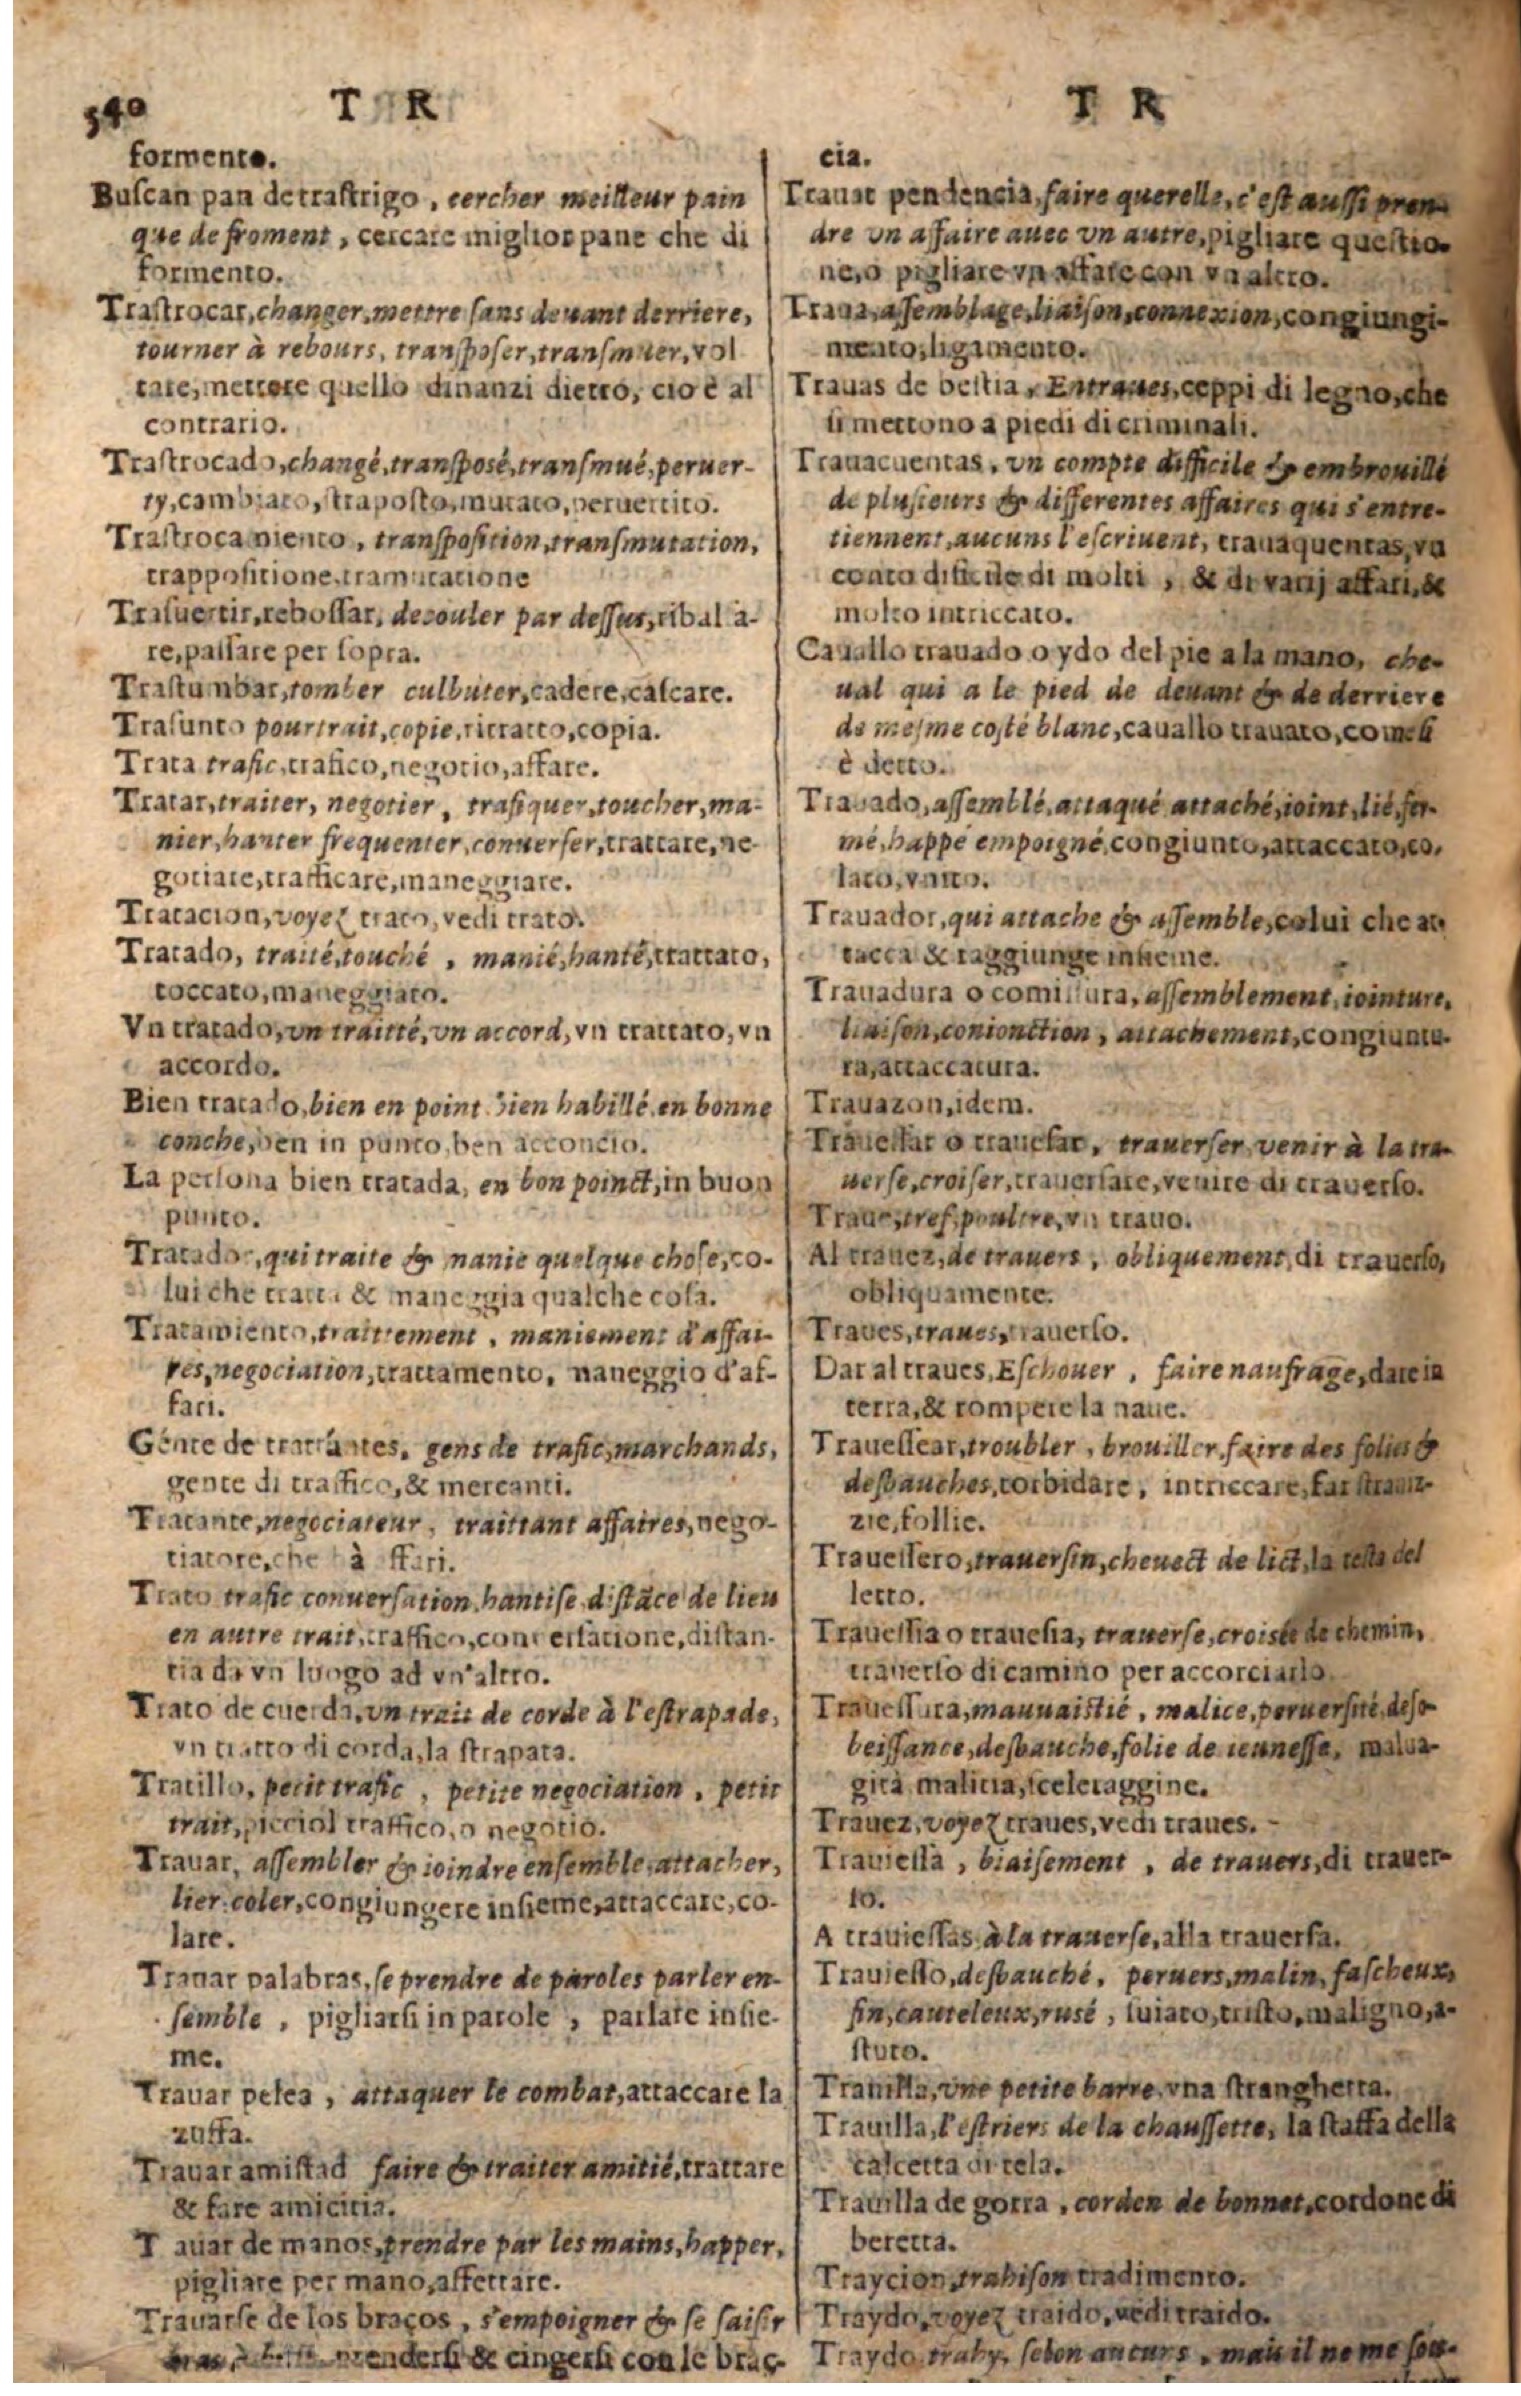 540 T R
formento.
Buſcan pan de traſtrigo, cercher meilleur pain
que de froment, cercare miglior pane che di
formento.
Traſtrocar, changer, mettre ſans deuant derriere,
tourner à rebours, transpoſer, tranſmuer, vol
tare, mettere quello dinanzi dietro, cio è al
contrario.
Traſtrocado, changé, transpoſé, tranſmué, peruer-
ty, cambiato, ſtrapoſto, mutato, peruertito.
Traſtrocamiento, transpoſition, tranſmutation,
trappoſitione, tramutatione
Traſuertir, reboſſar, decouler par deſſus, ribalta-
re, paſſare per ſopra.
Traſtumbar, tomber culbuter, cadere, caſcare.
Traſunto pourtrait, copie, ritratto, copia.
Trata trafic, trafico, negotio, affare.
Tratar, traiter, negotier, trafiquer, toucher, ma-
nier, hanter frequenter, conuerſer, trattare, ne-
gotiare, trafficare, maneggiare.
Tratacion, voyez trato, vedi trato.
Tratado, traité, touché, manié, hanté, trattato,
toccato, maneggiato.
Vn tratado, vn traitté, vn accord, vn trattato, vn
accordo.
Bien tratado, bien en point bien habillé en bonne
conche, ben in punto, ben acconcio.
La perſona bien tratada, en bon poinct, in buon
punto.
Tratador, qui traite & manie quelque choſe, co-
lui che tratta & maneggia qualche coſa.
Tratamiento, traittement, maniement d'affai-
res, negociation, trattamento, maneggio d'af-
fari.
Gente de tratantes, gens de trafic, marchands,
gente di traffico, & mercanti.
Tratante, negociateur, traittant affaires, nego-
tiatore, che hà affari.
Trato trafic conuerſation, hantiſe, diſtãce de lieu
en autre trait, traffico, conuerſatione, diſtan-
tia da vn luogo ad vn'altro.
Trato de cuerda, vn trait de corde à l'eſtrapade,
vn tratto di corda, la ſtrapata.
Tratillo, petit trafic, petite negociation, petit
trait, picciol traffico, o negotio.
Trauar, aſſembler & ioindre enſemble, attacher,
lier, coler, congiungere inſieme, attaccare, co-
lare.
Trauar palabras, ſe prendre de paroles parler en-
ſemble, pigliarſi in parole, parlare inſie-
me.
Trauar pelea, attaquer le combat, attaccare la
zuffa.
Trauar amiſtad faire & traiter amitié, trattare
& fare amicitia.
Trauar de manos, prendre par les mains, happer,
pigliare per mano, affettare.
Trauarſe de los braços, s'empoigner & ſe ſaiſir
prenderſi & cingerſi con le brac-
T R
cia.
Trauar pendencia, faire querelle, c'eſt auſſi pren-
dre vn affaire auec vn autre, pigliare queſtio-
ne, o pigliare vn affare con vn altro.
Traua, aſſemblage, liaiſon, connexion, congiungi-
mento, ligamento.
Trauas de beſtia, Entraues, ceppi di legno, che
ſi mettono a piedi di criminali.
Trauacuentas, vn compte difficile & embrouillé
de pluſieurs & differentes affaires qui s'entre-
tiennent, aucuns l'eſcriuent, trauaquentas, vn
conto dificile di molti, & di varij affari, &
molto intriccato.
Cauallo trauado o ydo del pie a la mano, che-
ual qui a le pied de deuant & de derriere
de meſme coſté blanc, cauallo trauato, come ſi
è detto.
Trauado, aſſemblé, attaqué attaché, ioint, lié, fer-
mé, happé empoigné, congiunto, attaccato, co-
lato, vnito.
Trauador, qui attache & aſſemble, colui che at-
tacca & raggiunge inſieme.
Trauadura o comiſſura, aſſemblement, iointure,
liaiſon, conionction, attachement, congiuntu-
ra, attaccatura.
Trauazon, idem.
Traueſſar o traueſar, trauerſer, venir à la tra-
uerſe, croiſer, trauerſare, venire di trauerſo.
Traue, tref, poultre, vn trauo.
Al trauez, de trauers, obliquement, di trauerſo,
obliquamente.
Traues, traues, trauerſo.
Dar al traues, Eſchouer, faire naufrage, dare in
terra, & rompere la naue.
Traueſſear, troubler, brouiller, faire des folies &
deſbauches, torbidare, intriccare, far ſtrauiz-
zie, follie.
Traueſſero, trauerſin, cheuect de lict, la teſta del
letto.
Traueſſia o traueſia, trauerſe, croisée de chemin,
trauerſo di camino per accorciarlo.
Traueſſura, mauuaiſtié, malice, peruerſité, deſo-
beiſſance, deſbauche, folie de ieuneſſe, malua-
gità malitia, ſceleraggine.
Trauez, voyez traues, vedi traues.
Trauieſſa, biaiſement, de trauers, di trauer-
ſo.
A trauieſſas, à la trauerſe, alla trauerſa.
Trauieſſo, deſbauché, peruers, malin, faſcheux,
fin, cauteleux, rusé, ſuiato, triſto, maligno, a-
ſtuto.
Trauilla, vne petite barre, vna ſtranghetta.
Trauilla, l'eſtriers de la chauſſette, la ſtaffa della
calcetta di tela.
Trauilla de gorra, corden de bonnet, cordone di
beretta.
Traycion, trahiſon tradimento.
Traydo, voyez traido, vedi traido.
Traydo, trahy, ſelon aucuns, mais il ne me ſou-